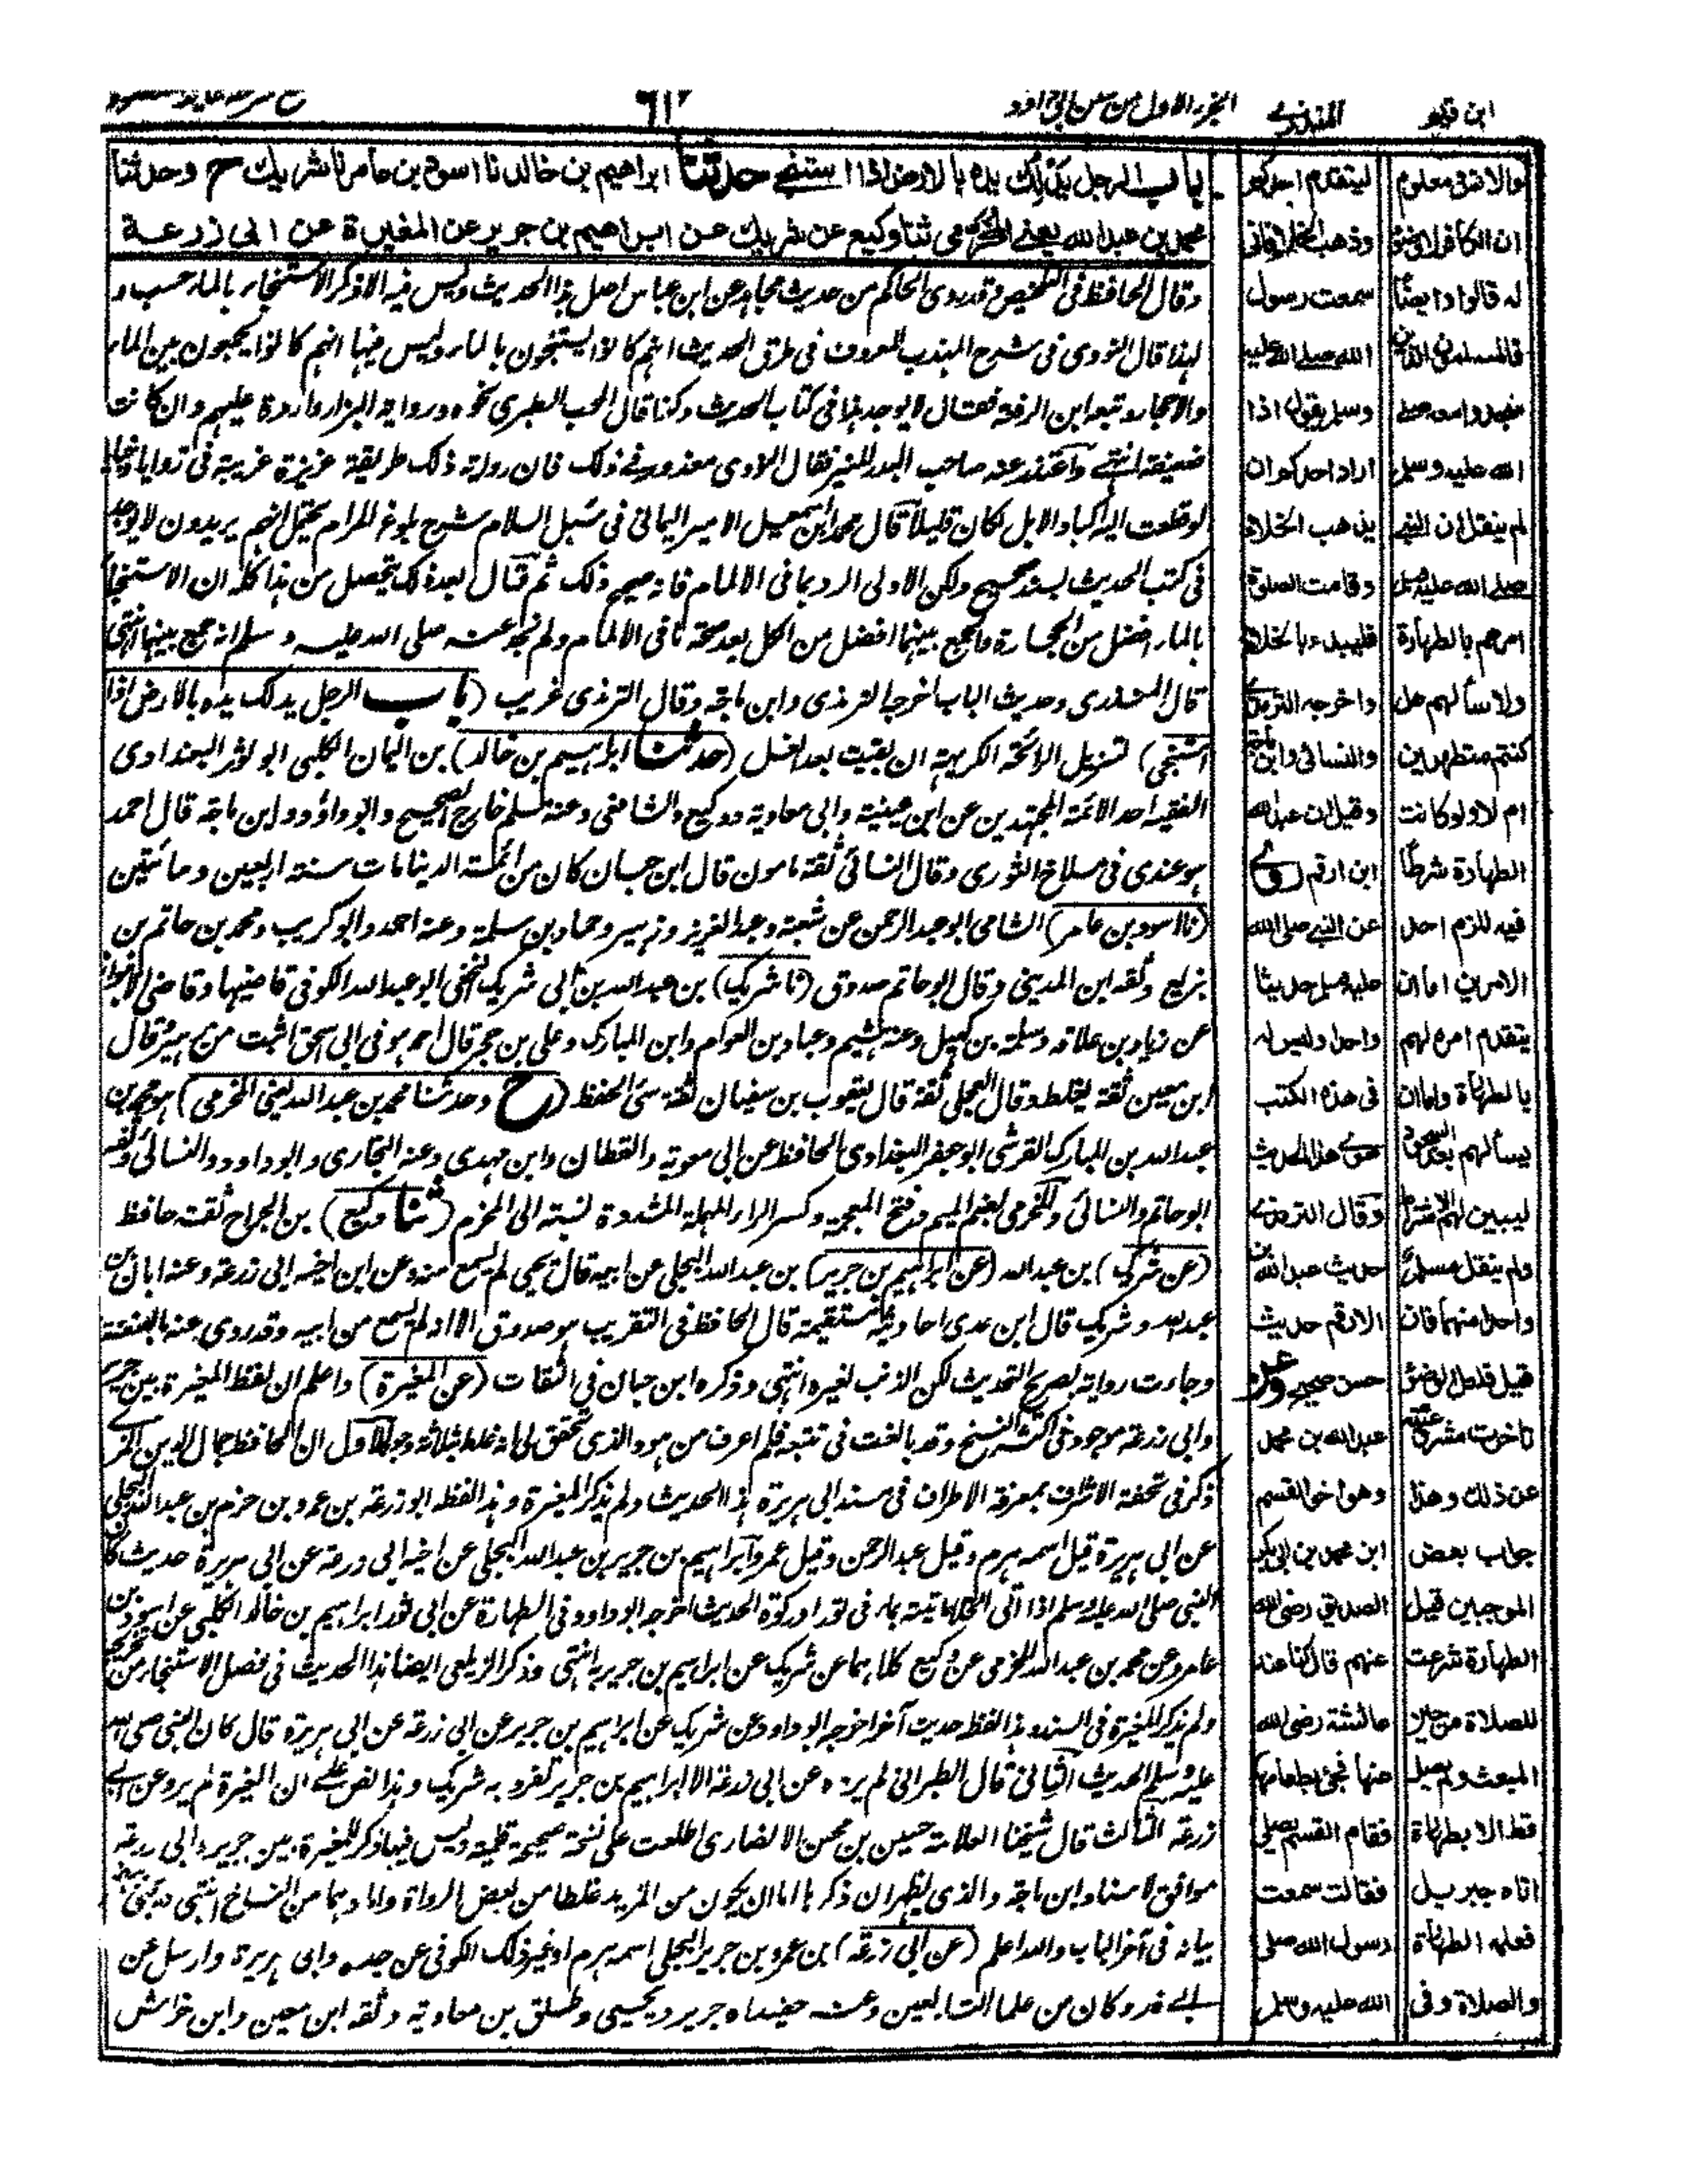 ابن قيم
المنذري
الجزء الاول من سنن ابي داود
باب الرجل يدلك يده بالارض اذا استنجى حدثنا ابراهيم بن خالد نا اسود بن عامر نا شريك ح وحدثنا
محمد بن عبد الله يعني المخرمي ثنا وكيع عن شريك عن ابراهيم بن جرير عن المغيرة عن ابي زرعة
وقال الحافظ في التلخيص وقد روى الحاكم من حديث مجاهد عن ابن عباس اصل هذا الحديث وليس فيه الا ذكر الاستنجاء بالماء حسب و
لهذا قال النووي في شرح المهذب المعروف في طرق الحديث انهم كانوا يستنجون بالماء وليس فيها انهم كانوا يجمعون بين الماء
والاحجار وتبعه ابن الرفعة فقال لا يوجد هذا في كتاب الحديث وكذا قال المحب الطبري نحوه ورواية البزار واردة عليهم وان كانت
ضعيفة انتهى واعتذر عنه صاحب البدر المنير فقال النووي معذور في ذلك فان رواية ذلك طريقة عزيزة غريبة في زوايا وخبايا
لو قطعت اليه اكباد الابل لكان قليلا قال محمد ابن اسمعيل الامير اليماني في سبل السلام شرح بلوغ المرام يحتمل انهم يريدون لا يوجد
في كتب الحديث بسند صحيح ولكن الاولى الرد بما في الالمام فانه صحح ذلك ثم قال بعد ذلك تحصل من هذا كله ان الاستنجاء
بالماء افضل من الحجارة والجمع بينهما افضل من الكل بعد صحة ما في الالمام ولم نجد عنه صلى الله عليه وسلم انه جمع بينهما انتهى
قال المنذري وحديث الباب اخرجه الترمذي وابن ماجة وقال الترمذي غريب (باب الرجل يدلك يده بالارض اذا
استنجى) لتزيل الرائحة الكريهة ان بقيت بعد الغسل (حدثنا ابراهيم بن خالد) بن اليمان الكلبي ابو ثور البغدادي
الفقيه احد الائمة المجتهدين عن ابن عيينة وابي معاوية ووكيع والشافعي وعنه مسلم خارج الصحيح وابو داود وابن ماجة قال احمد
هو عندي في مسلاخ الثوري وقال النسائي ثقة مامون قال ابن حبان كان من ائمة الدنيا مات سنة اربعين ومائتين
(نا اسود بن عامر) الشامي ابو عبد الرحمن عن شعبة وعبد العزيز وزهير وحماد بن سلمة وعنه احمد وابو كريب ومحمد بن حاتم بن
بزيع وثقه ابن المديني وقال ابو حاتم صدوق (نا شريك) بن عبد الله بن ابي شريك النخعي ابو عبد الله الكوفي قاضيها وقاضي الاهواز
عن زياد بن علاقة وسلمة بن كهيل وعنه هشيم وعباد بن العوام وابن المبارك وعلي بن حجر قال احمد هو في ابي اسحق اثبت من زهير وقال
ابن معين ثقة يغلط وقال العجلي ثقة قال يعقوب بن سفيان ثقة سيئ الحفظ (ح وحدثنا محمد بن عبد الله يعني المخرمي) هو محمد بن
عبد الله بن المبارك القرشي ابو جعفر البغدادي الحافظ عن ابي معوية والقطان وابن مهدي وعنه البخاري وابو داود والنسائي وثقه
ابو حاتم والنسائي والمخرمي بضم الميم وفتح المعجمة وكسر الراء المهملة المشددة نسبة الى المخرم (ثنا وكيع) بن الجراح ثقة حافظ
(عن شريك) بن عبد الله (عن ابراهيم بن جرير) بن عبد الله البجلي عن ابيه قال يحيى لم يسمع منه وعن ابن اخيه ابي زرعة وعنه ابان بن
عبد الله وشريك قال ابن عدي احاديثه مستقيمة قال الحافظ في التقريب هو صدوق الا انه لم يسمع من ابيه وقد روى عنه بالعنعنة
وجاءت رواية بصريح التحديث لكن الذنب لغيره انتهى وذكره ابن حبان في الثقات (عن المغيرة) واعلم ان لفظ المغيرة بين جرير
وابي زرعة موجود في اكثر النسخ وقد بالغت في تتبعه فلم اعرف من هو والذي تحقق لي انه غلط بثلاثة وجوه الاول ان الحافظ جمال الدين المزي
ذكر في تحفة الاشراف بمعرفة الاطراف في مسند ابي هريرة هذا الحديث ولم يذكر المغيرة وهذا لفظه ابو زرعة بن عمرو بن حزم بن عبد الله البجلي
عن ابي هريرة قيل اسمه هرم وقيل عبد الرحمن وقيل عمرو ابراهيم بن جرير بن عبد الله البجلي عن ابن اخيه ابي زرعة عن ابي هريرة حديث كان
النبي صلى الله عليه وسلم اذا اتى الخلاء اتيته بماء في تور او ركوة الحديث اخرجه ابو داود في الطهارة عن ابي ثور ابراهيم بن خالد الكلبي عن اسود بن
عامر وعن محمد بن عبد الله المخرمي عن وكيع كلاهما عن شريك عن ابراهيم بن جرير به انتهى وذكر الزيلعي ايضا هذا الحديث في فصل الاستنجاء من تخريجه
ولم يذكر المغيرة في السند وهذا لفظه حديث آخر اخرجه ابو داود عن شريك عن ابراهيم بن جرير عن ابي زرعة عن ابي هريرة قال كان النبي صلى الله
عليه وسلم الحديث الثاني قال الطبراني لم يروه عن ابي زرعة الا ابراهيم بن جرير تفرد به شريك وهذا نص على ان المغيرة لم يرو عن ابي
زرعة الثالث قال شيخنا العلامة حسين بن محسن الانصاري اطلعت على نسخة صحيحة قلمية وليس فيها ذكر المغيرة بين جرير وابي زرعة
موافق لاسناد ابن ماجة والذي يظهر ان ذكره اما ان يكون من المزيد غلطا من بعض الرواة واما وهما من النساخ انتهى
بيانه في آخر الباب والله اعلم (عن ابي زرعة) بن عمرو بن جرير البجلي اسمه هرم او غير ذلك الكوفي عن جده وابي هريرة وارسل عن
ابي ذر وكان من علماء التابعين وعنه حفيداه جرير ويحيى وطلق بن معاوية وثقه ابن معين وابن خراش
ليتقدم احدكم
وذهب الخلاء فاني
سمعت رسول
الله صلى الله عليه
وسلم يقول اذا
اراد احدكم ان
يذهب الخلاء
وقامت الصلوة
فليبدء بالخلاء
واخرجه الترمذي
والنسائي وابن ماجة
وقيل ان عبد الله
ابن ارقم روى
عن النبي صلى الله
عليه وسلم حديثا
واحدا وليس له
في هذه الكتب
سوى هذا الحديث
وقال الترمذي
حديث عبد الله بن
الارقم حديث
حسن صحيح وعن
عبد الله بن محمد
وهو اخو القسم
ابن محمد بن ابي بكر
الصديق رضي الله
عنهم قال كنا عند
عائشة رضي الله
عنها فجئ بطعامها
فقام القسم يصلي
فقالت سمعت
رسول الله صلى
الله عليه وسلم
والاثر في معلوم
له قالوا وايضا
الله عليه وسلم
لم ينقل ان النبي
صلى الله عليه وسلم
امرهم بالطهارة
ولا سألهم هل
كنتم متطهرين
ام لا ولو كانت
الطهارة شرطا
فيه للزم احد
الامرين اما ان
يتقدم امره لهم
بالطهارة واما ان
يسألهم بعد السجود
ليبين لهم الاشتراط
ولم ينقل مسلم
واحدا منهما فان
عن ذلك وهذا
جواب بعض
الموجبين قيل
الطهارة شرعت
للصلاة من حين
المبعث ولم يصل
قط الا بطهارة
اتاه جبريل
فعلمه الطهارة
والصلاة وفي